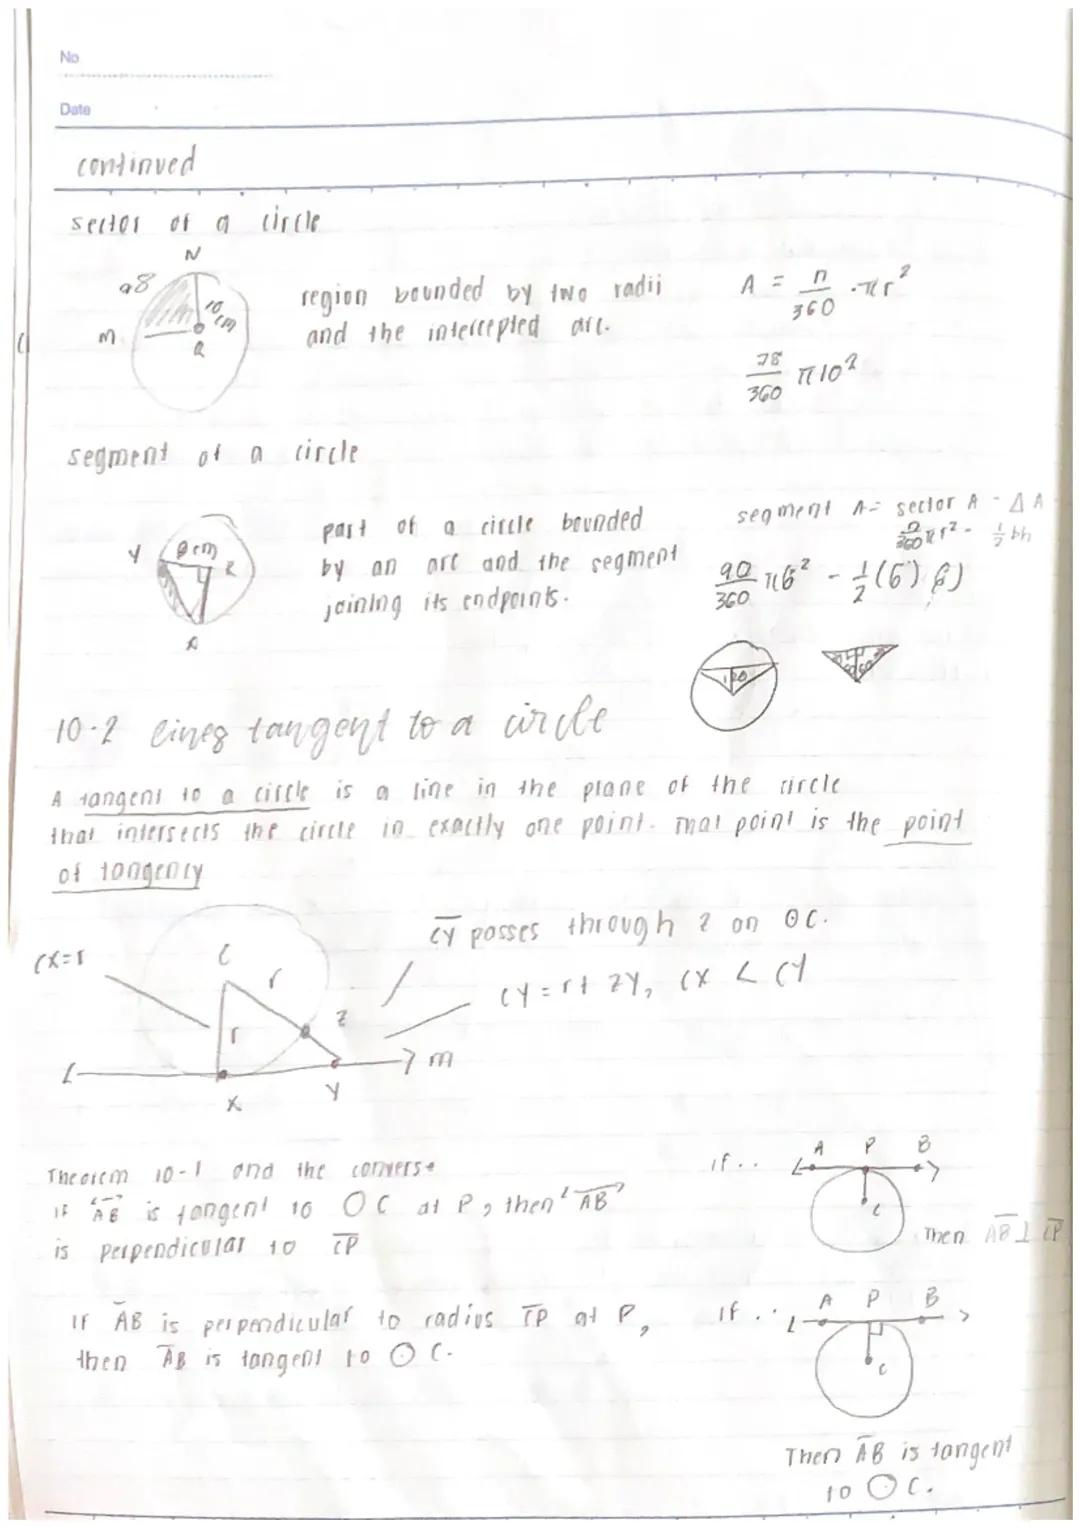 No
Date
continued
sector of a circle
N
98
10 cm
m
Q
region bounded by two radii
and the intercepted arc.
A = n/360 · πr²
78/360 π10²
segment of a circle
Y
R
X
part of a circle bounded
by an arc and the segment
joining its endpoints.
segment A = sector A - Δ A
n/360 πr² - ½ bh
90/360 π6² - ½(6)(6)
120
10-2 lines tangent to a circle
A tangent to a circle is a line in the plane of the circle
that intersects the circle in exactly one point. That point is the point
of tangency
CX=r
C
r
r
Z
m
X
Y
CY passes through Z on ⊙C.
CY = r + ZY, CX < CY
Theorem 10-1 and the converse
if AB is tangent to ⊙C at P, then AB
is perpendicular to CP
if..
A P B
C
Then AB ⊥ CP
If AB is perpendicular to radius CP at P,
then AB is tangent to ⊙C.
if..
A P B
C
Then AB is tangent
to ⊙C.